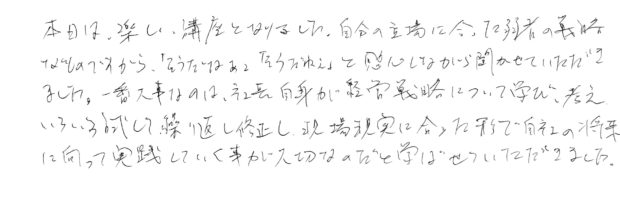 本日は、楽しい講座となりました。自分の立場に合った弱者の戦略
なものですから、「そうだなぁ」「そうだねぇ」と感心しながら聞かせていただき
ました。一番大事なのは、社長自身が経営戦略について学び、考え
いろいろ試して繰り返し修正し、現場現実に合った形で自社の将来
に向って実践していく事が大切なのだと学ばせていただきました。